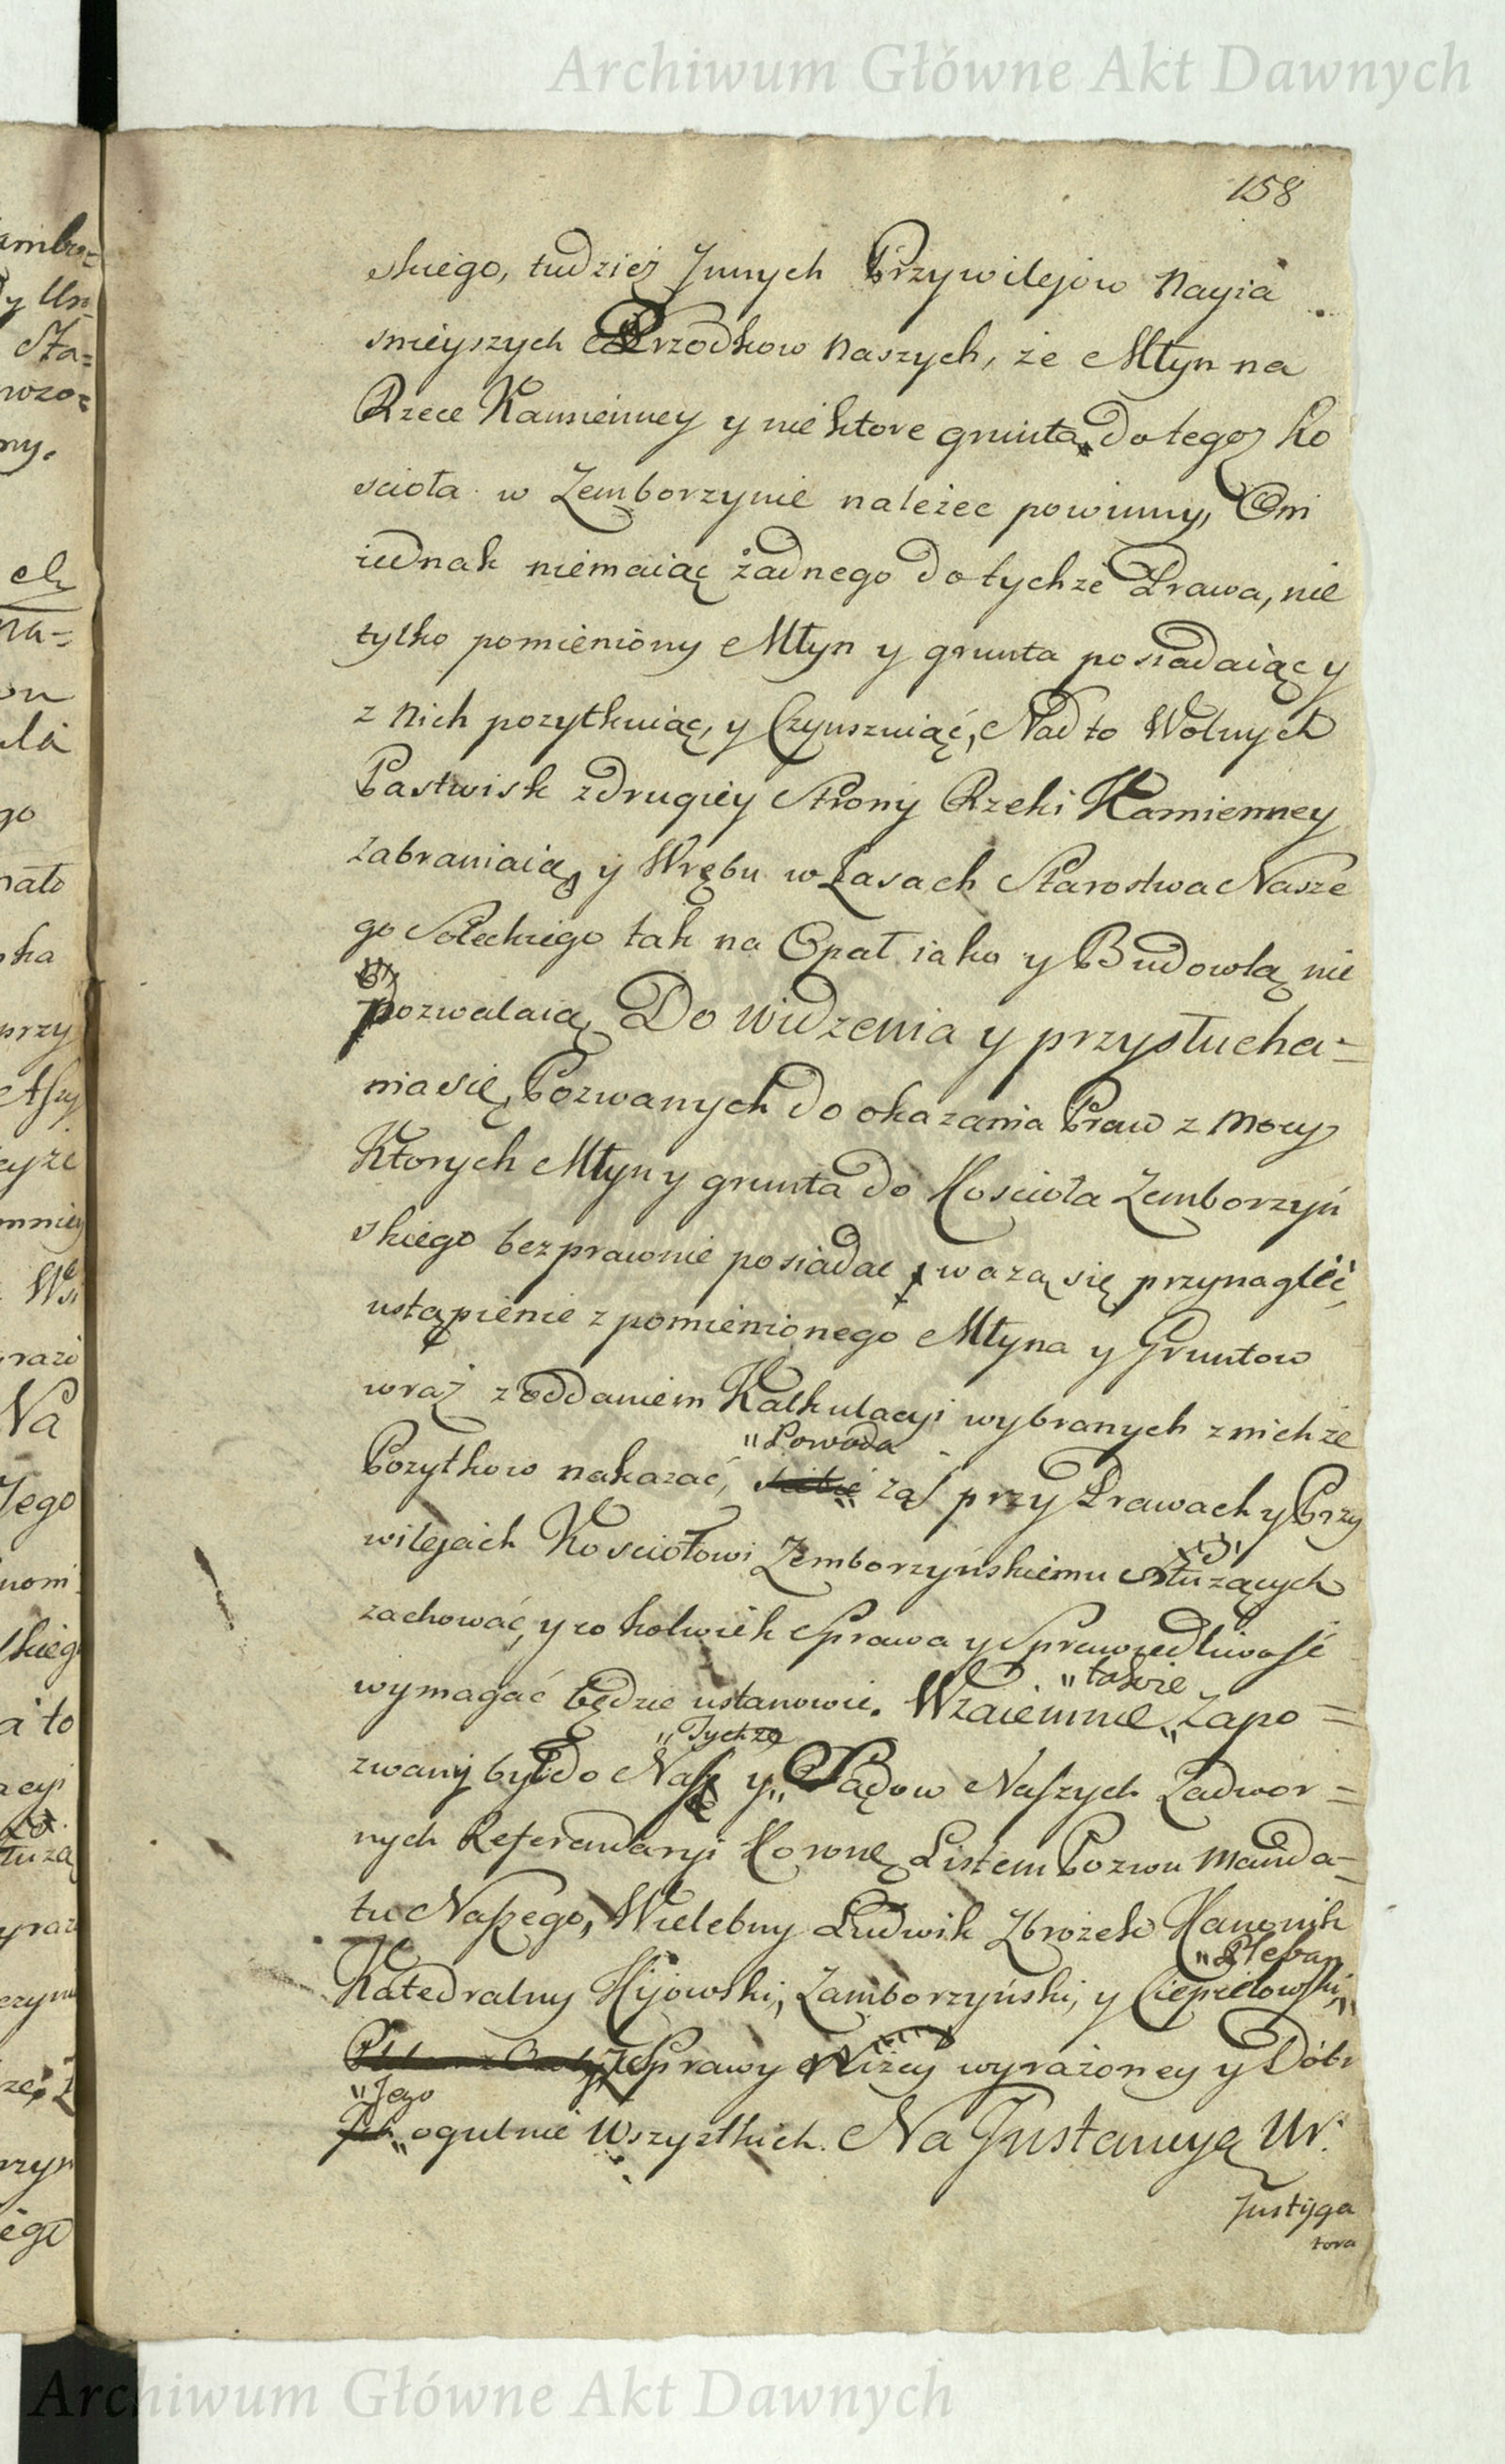 Archiwum Główne Akt Dawnych
158
skiego, tudzież Jnnych Przywilejow Nayia
snieyszych Przodkow Naszych, że Młyn na
Rzece Kamienney y nie ktore grunta do tegoz Ko
scioła w Zemborzynie należec powinny, Oni
iednak niemaiąc żadnego do tychże Prawa, nie
tylko pomieniony Młyn y grunta posiadaiąc y
z Nich pozytkuiąc, y Czynszuiąc, Nad to Wolnych
Pastwisk z drugiey Strony Rzeki Kamienney
zabraniaią, y Wrębu w Lasach Starostwa Nasze
go Soleckiego tak na Opał iako y Budowlą nie
pozwalaią, Do widzenia y przysłucha=
nia się, Pozwanych do okazania Praw z mocy
Ktorych Młyn y grunta do Koscioła Zemborzyń
skiego bezprawnie posiadac ważą się przynaglić,
ustąpienie z pomienionego Młyna y Gruntow
wraz z oddaniem Kalkulacyi wybranych z nichże
"Powoda
Pozytkow nakazać, zaś przy Prawach y Przy
wilejach Kosciołowi Zemborzyńskiemu służących
zachować, y co kolwiek Sprawa y Sprawiedliwość
wymagać będzie ustanowić. Wzaiemnie Zapo=
"takze
"Tychże
zwany był do Nas y Sądow Naszych Zadwor=
nych Referendaryi Koronę Listem Pozwu Manda=
tu Naszego, Wielebny Ludwik Zbrożek Kanonik
"Pleban
Katedralny Kijowski, Zamborzyński, y Ciepielowski,
Ze Sprawy Niżey wyrażoney y Dóbr
"Jego
ogulnie Wszystkich. Na Jnstancyą Ur.
Jnstyga
tora
Archiwum Główne Akt Dawnych